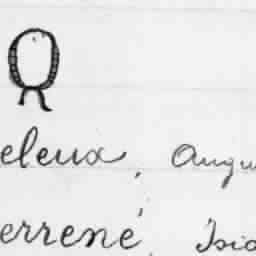 Q
eleux, Augu
errené, Isid